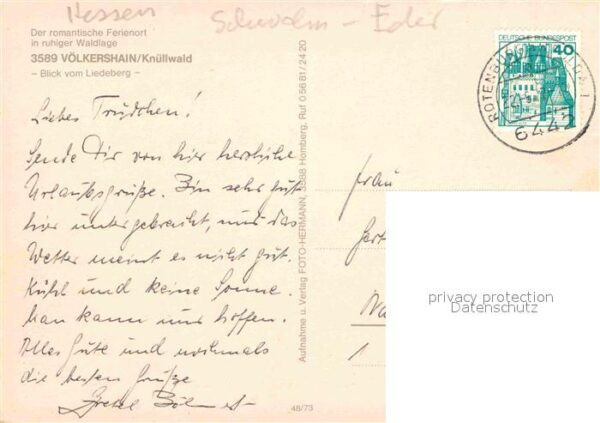 Hessen
Schwalm - Eder
Der romantische Ferienort
in ruhiger Waldlage
3589 VÖLKERSHAIN/Knüllwald
– Blick vom Liedeberg –
DEUTSCHE BUNDESPOST
40
ROTENBURG
1
6442
Liebes Trudchen!
Sende Dir von hier herzliche
Urlaubsgrüße. Bin sehr gut
hier untergebracht, nur das
Wetter meint es nicht gut.
Kühl und keine Sonne.
Man kann nur hoffen.
Alles Gute und nochmals
die besten Grüße
Gretel
Aufnahme u. Verlag FOTO-HERMANN, 3588 Homberg, Ruf 0 56 81 / 24 20
48/73
Frau
1
privacy protection
Datenschutz